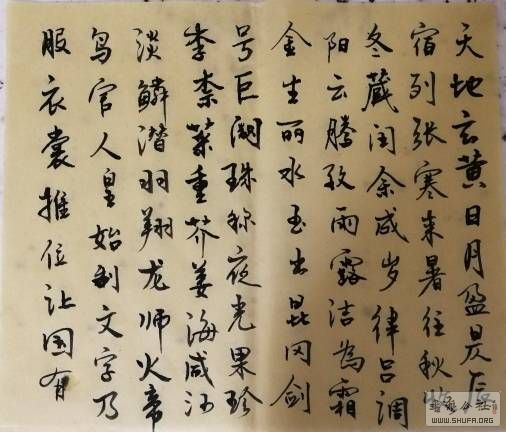 天地玄黄日月盈昃辰
宿列张寒来暑往秋收
冬藏闰余成岁律吕调
阳云腾致雨露洁为霜
金生丽水玉出昆冈剑
号巨阙珠称夜光果珍
李柰菜重芥姜海咸河
淡鳞潜羽翔龙师火帝
鸟官人皇始制文字乃
服衣裳推位让国有
WWW.SHUFA.ORG